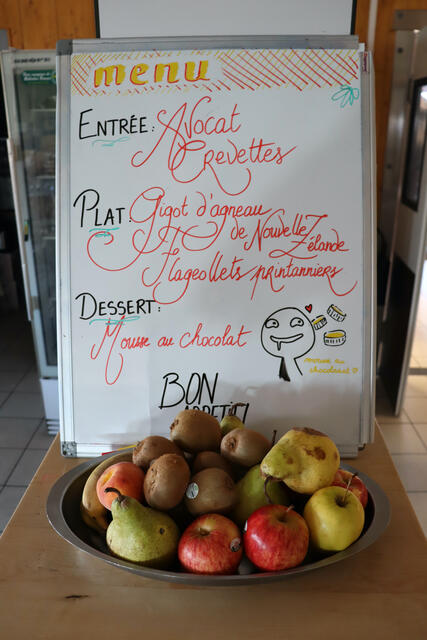 menu
ENTRÉE: Avocat
Crevettes
PLAT: Gigot d'agneau
de Nouvelle Zélande
Flageollets printanniers
DESSERT:
Mousse au chocolat
mousse au
chocolaaat
BON
APPETIT!